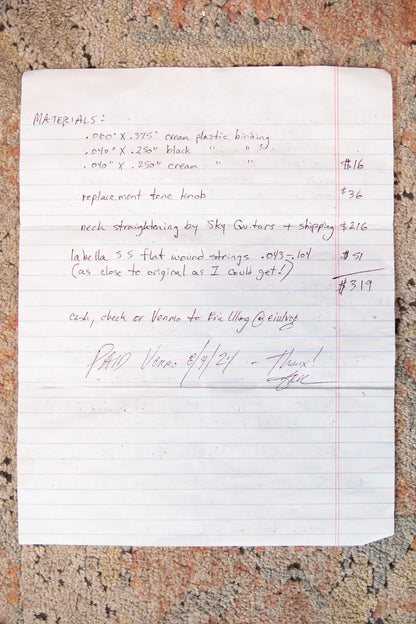 MATERIALS:
.060" X .375" cream plastic binding
.040" X .250" black " " "
.040" X .250" cream " " $16
replacement tone knob $36
neck straightening by Sky Guitars + shipping $216
labella SS flat wound strings .043-.104 $51
(as close to original as I could get!)
$319
cash, check or Venmo to Eric
PAID Venmo 8/9/24 - Thanx!